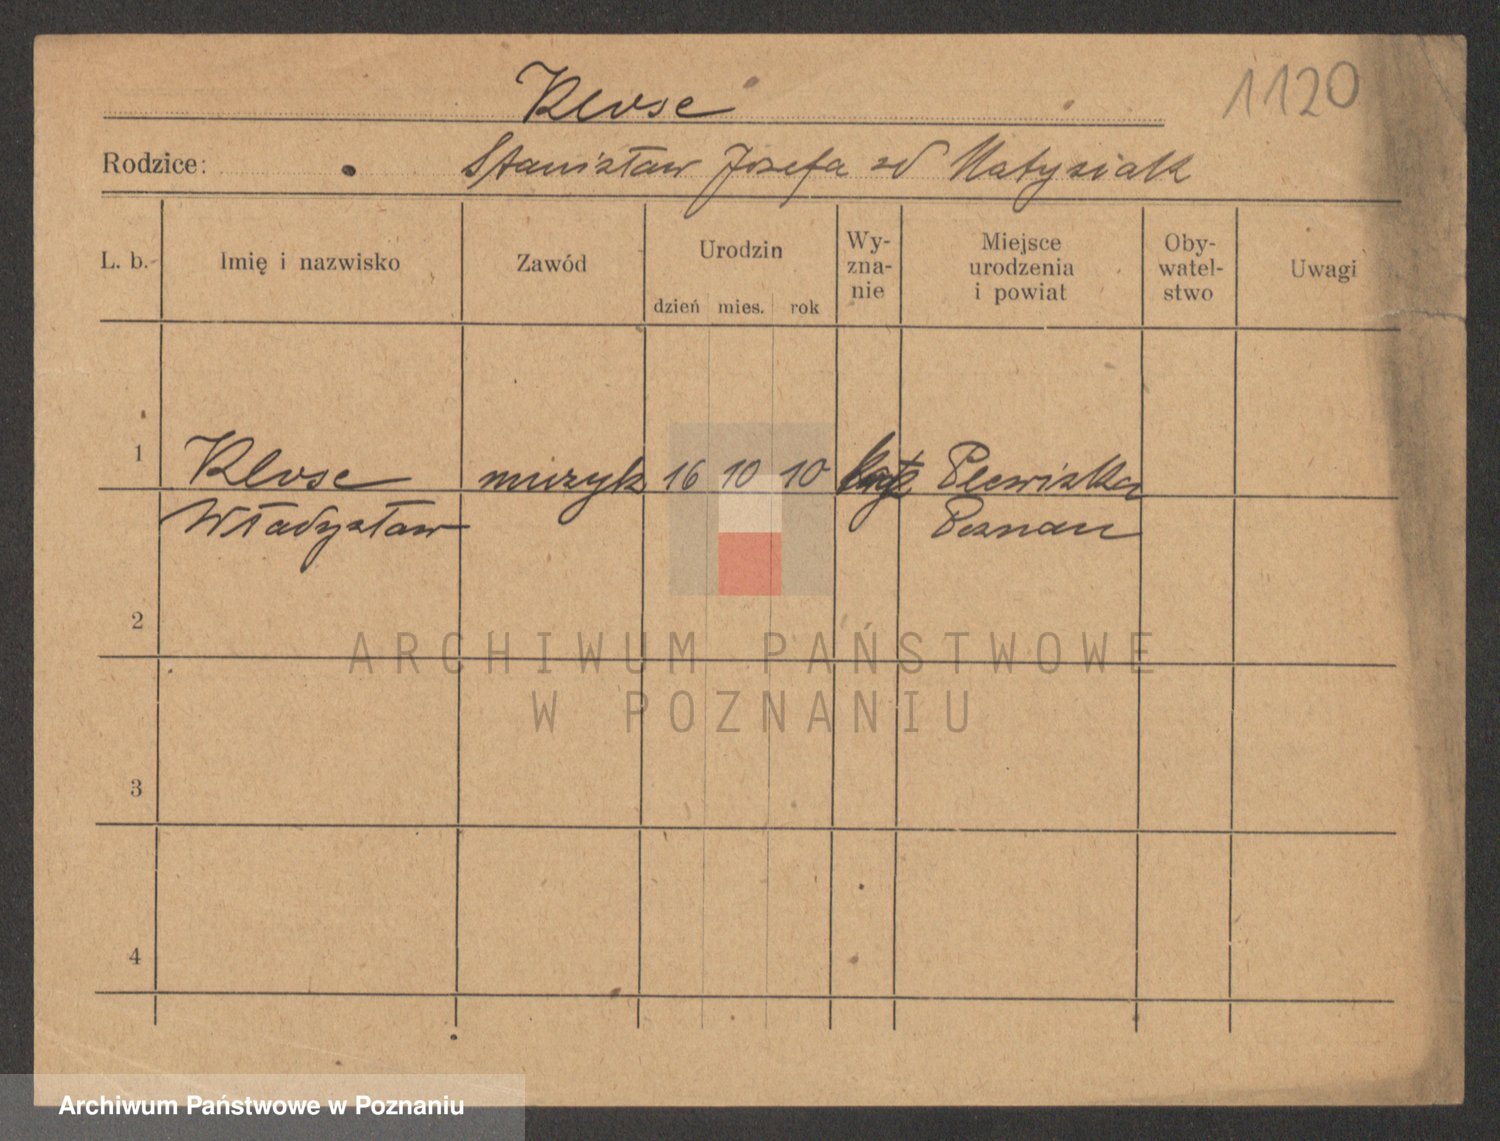 1120
Klose
Rodzice: Stanisław Józefa zd Matysiak
L. b. Imię i nazwisko Zawód Urodzin dzień mies. rok Wy-zna-nie Miejsce urodzenia i powiat Oby-watel-stwo Uwagi
1 Klose muzyk 16 10 10 kat Plewiska
Władysław Poznań
2
3
4
ARCHIWUM PAŃSTWOWE
W POZNANIU
Archiwum Państwowe w Poznaniu